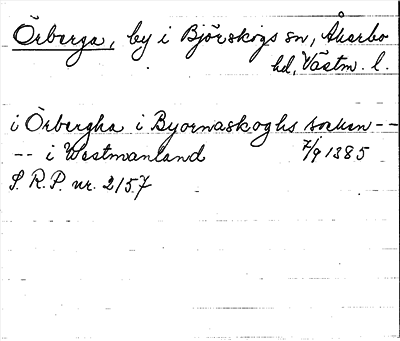 Örberga, by i Björskogs sn, Åkerbo
hd, Västm. l.
i Örbergha i Byornaskoghs sokum --
-- i Westmanland 7/9 1385
S. R. P. nr. 2157